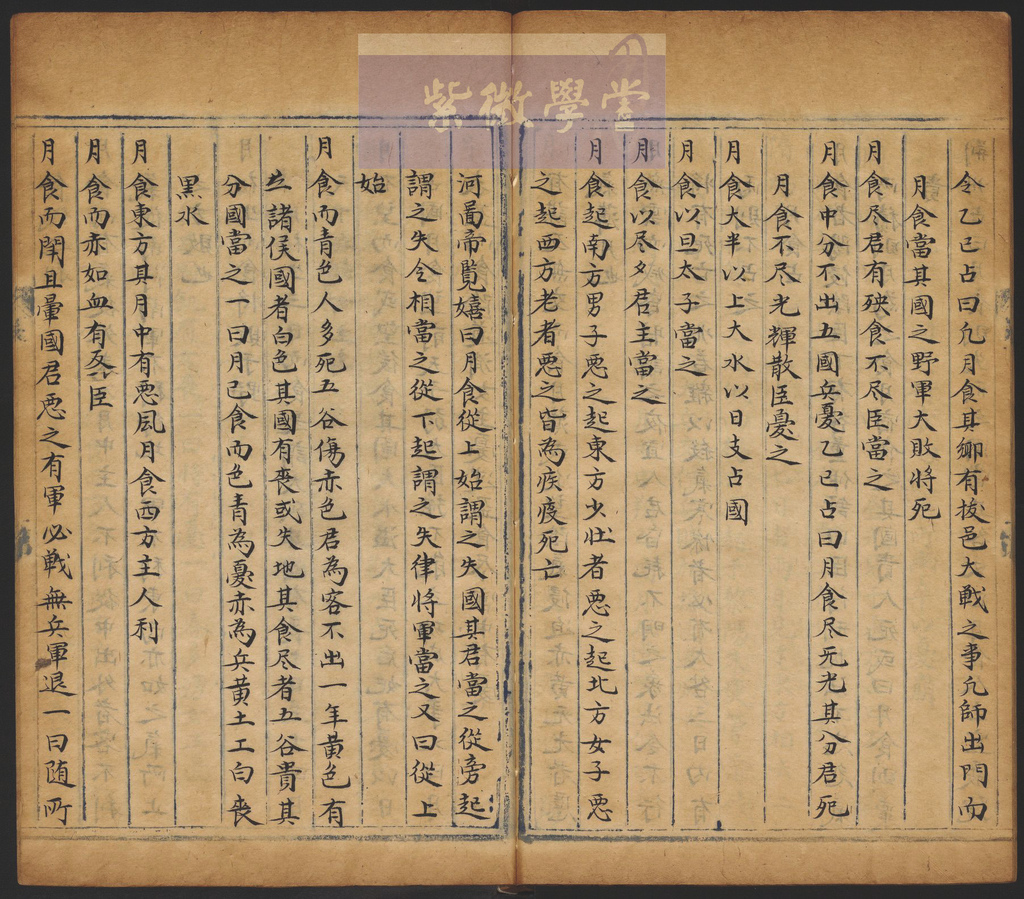 紫微學堂
令乙巳占曰凢月食其鄉有拔邑大戰之事凢師出門而
月食當其國之野軍大敗將死
月食尽君有殃食不尽臣當之
月食中分不出五國兵憂乙巳占曰月食尽无光其分君死
月食不尽光輝散臣憂之
月食大半以上大水以日支占國
月食以旦太子當之
月食以尽夕君主當之
月食起南方男子惡之起東方少壯者惡之起北方女子惡
之起西方老者惡之皆為疾疫死亡
河啚帝覽嬉曰月食從上始謂之失國其君當之從旁起
謂之失令相當之從下起謂之失律將軍當之又曰從上
始
月食而青色人多死五谷傷赤色君為客不出一年黃色有
諸侯國者白色其國有喪或失地其食尽者五谷貴其
分國當之一曰月已食而色青為憂赤為兵黃土工白喪
黑水
月食東方其月中有惡風月食西方主人利
月食而赤如血有反臣
月食而鬥且暈國君惡之有軍必戰無兵軍退一曰随所